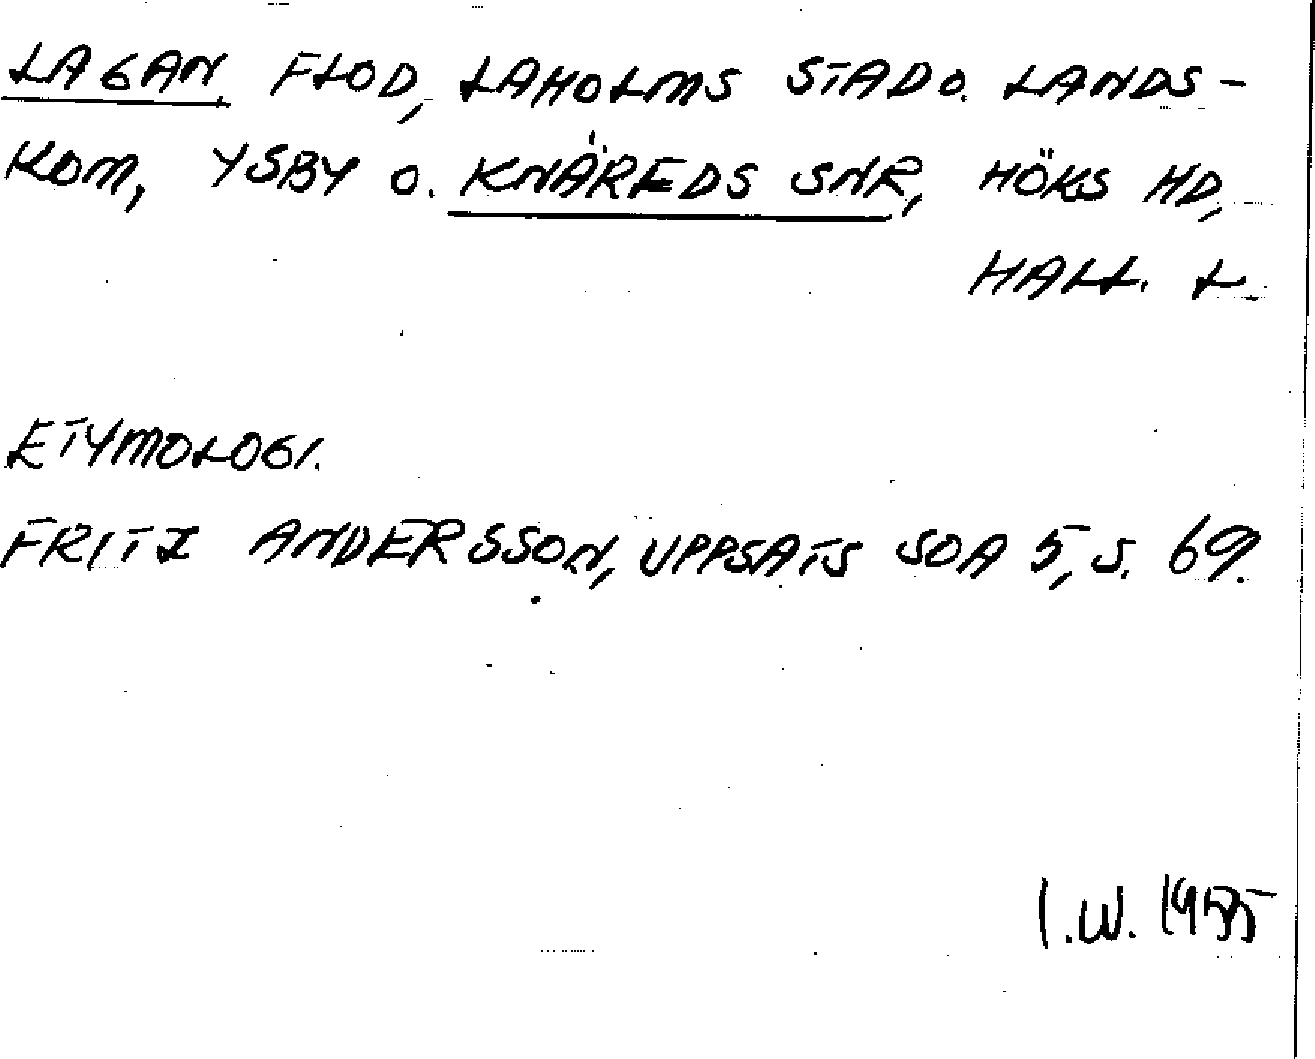 LAGAN, FLOD, LAHOLMS STAD O. LANDS-
KOM, YSBY O. KNÄREDS SNR, HÖKS HD,
HALL. L.
ETYMOLOGI.
FRITZ ANDERSSON, UPPSATS SOA 5, S. 69.
I.W. 1955